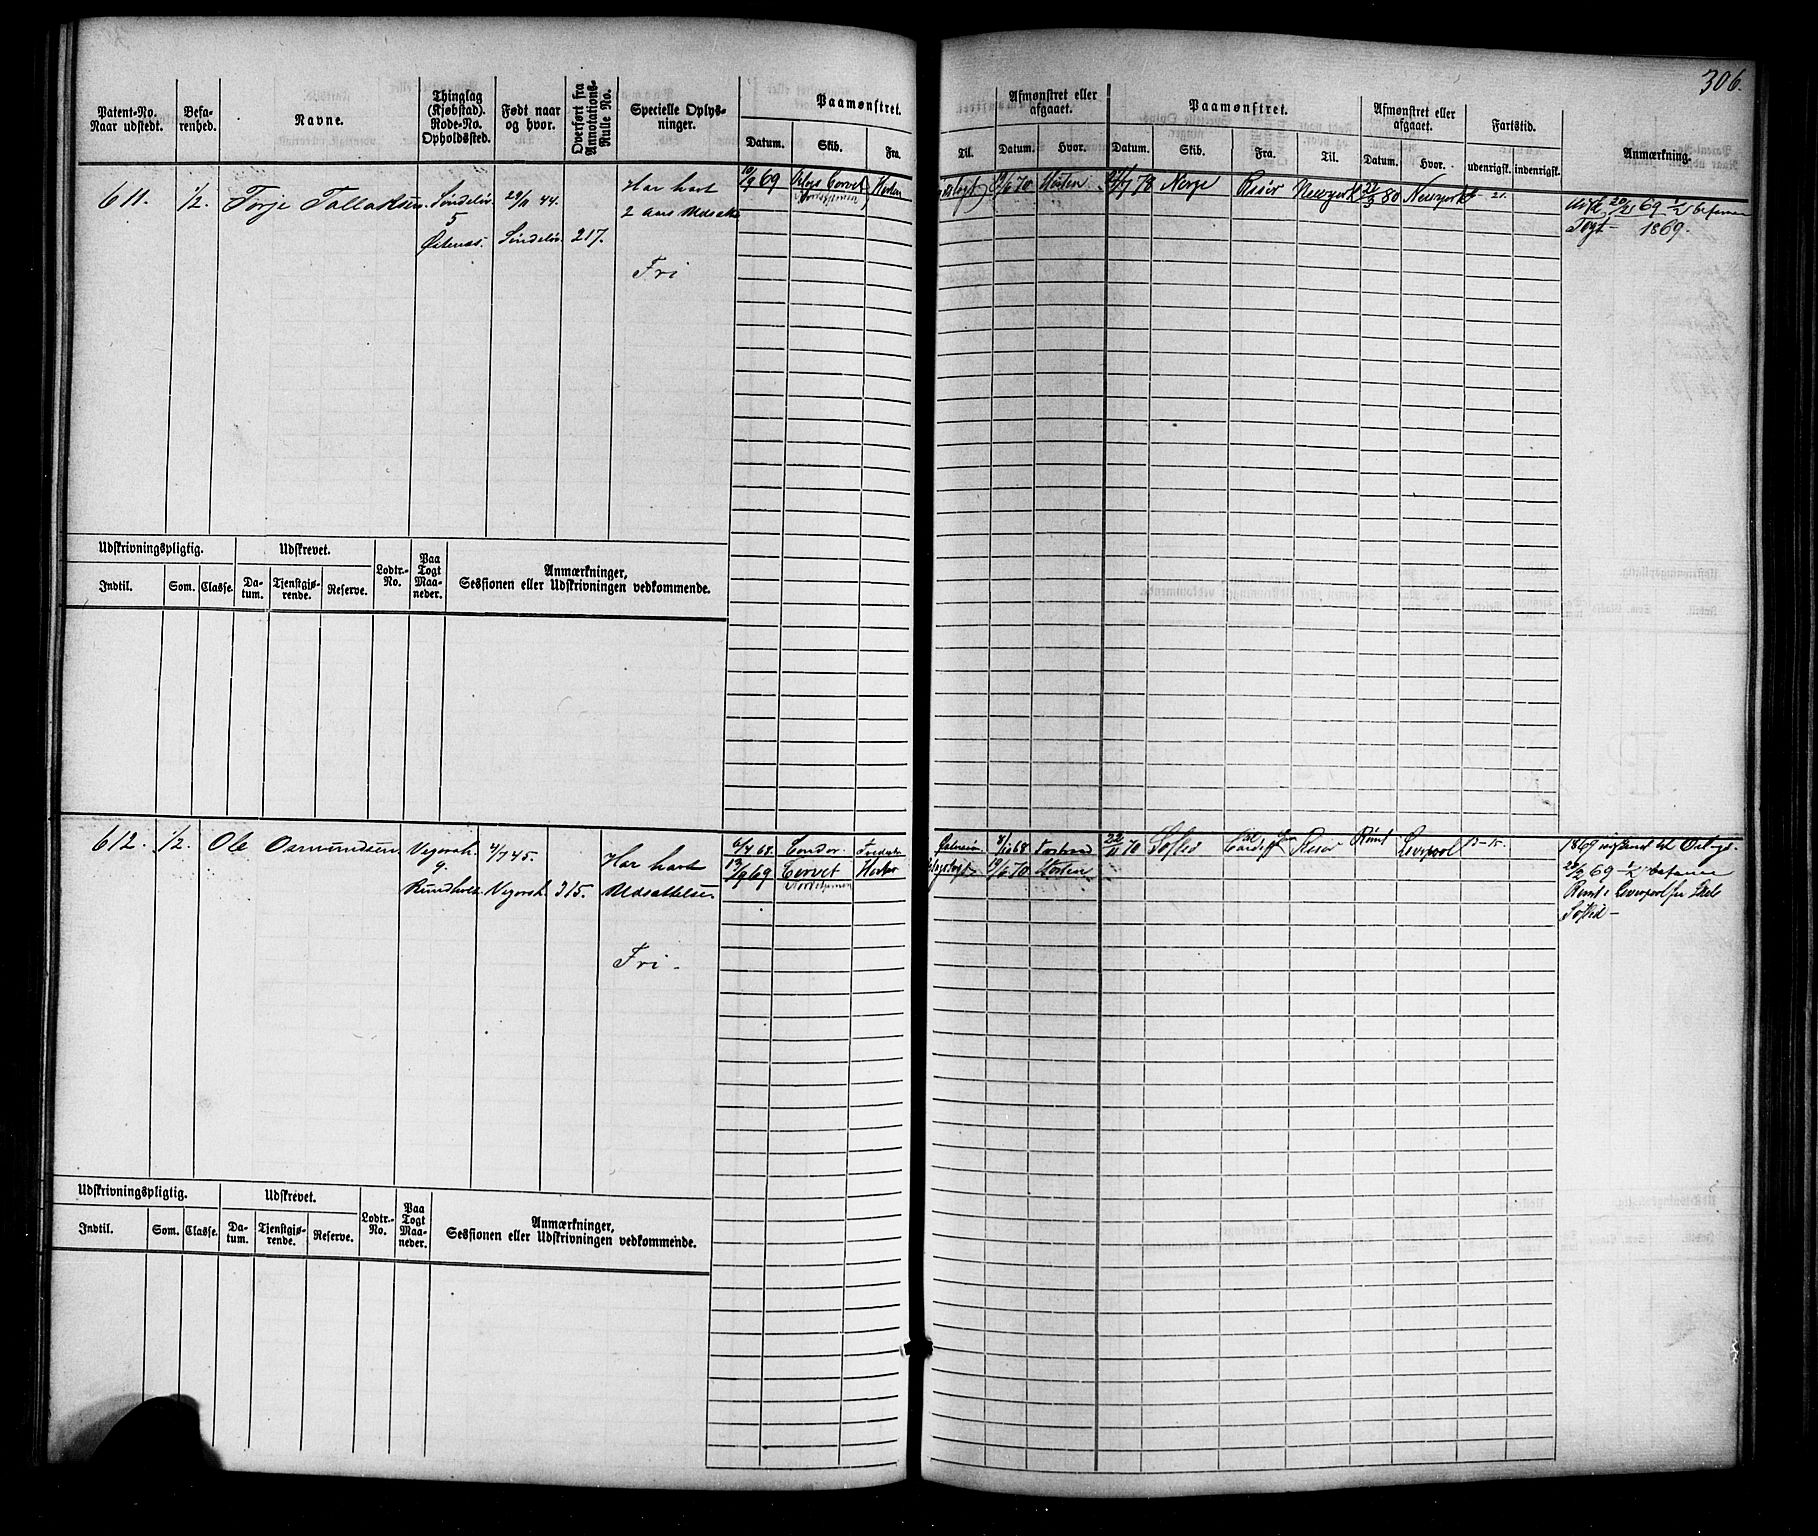 306.
Patent-No. Naar udstedt. Befarenhed. Navne. Thinglag (Kjøbstad). Rode-No. Opholdssted. Født naar og hvor. Overført fra Annotations-Rulle No. Specielle Oplysninger. Paamønstret. Afmønstret eller afgaaet. Paamønstret. Afmønstret eller afgaaet. Fartstid. Anmærkning.
Datum. Skib. Fra. Til. Datum. Hvor. Datum. Skib. Fra. Til. Datum. Hvor. udenrigsk. indenrigsk.
611. 1/2. Torje Tallaksen Søndeløv 29/11 44. Har havt 10/9 69 Orlogs Corvet Horten Togt 19/6 70 Horten 78 Norge Risør Newyork 22/3 80 Newyork 21. 69 1/2 befaren
5 2 Aars Udsættelse Nordstjernen Togt 1869.
Østenaa. Søndeløv 217.
Fri
Udskrivningspligtig. Udskrevet. Lodtr.-No. Paa Togt Maaneder. Anmærkninger, Sessionen eller Udskrivningen vedkommende.
Indtil. Som. Classe. Datum. Tjenstgjørende. Reserve.
612. 1/2. Ole Osmundsen Vegorsh. 4/7 45. Har havt 6/4 68. Condor 68 22/11 70 Cardiff Risør Rømt Liverpool 15-15. 1869 til Orlogs.
9. Udsættelse. 13/9 69 Corvet Horten 19/6 70 Horten 69 1/2 befaren
Rundholt Vegorsh. 315. Nordstjernen Rømt i Liverpool fra
Fri.
Udskrivningspligtig. Udskrevet. Lodtr.-No. Paa Togt Maaneder. Anmærkninger, Sessionen eller Udskrivningen vedkommende.
Indtil. Som. Classe. Datum. Tjenstgjørende. Reserve.